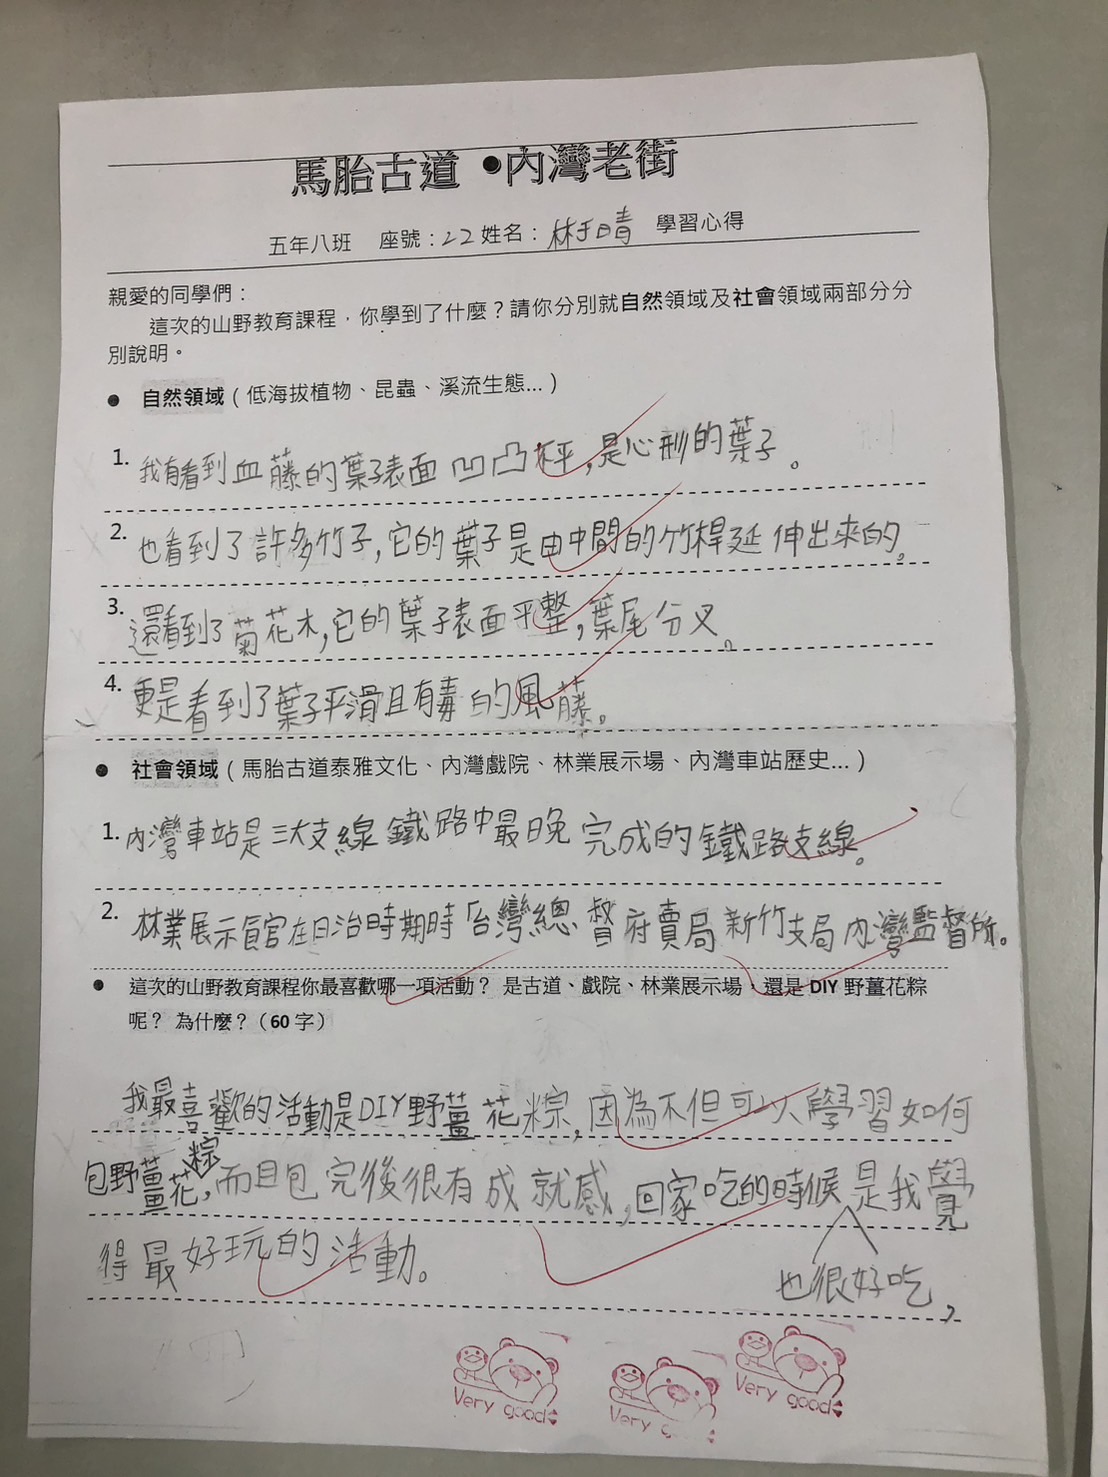 馬胎古道•內灣老街
五年八班 座號:22姓名:林于晴 學習心得
親愛的同學們:
這次的山野教育課程,你學到了什麼?請你分別就自然領域及社會領域兩部分分
別說明。
● 自然領域(低海拔植物、昆蟲、溪流生態…)
1. 我有看到血藤的葉子表面凹凸不平,是心形的葉子。
2. 也看到了許多竹子,它的葉子是由中間的竹桿延伸出來的。
3. 還看到了菊花木,它的葉子表面平整,葉尾分叉。
4. 更是看到了葉子平滑且有毒的風藤。
● 社會領域(馬胎古道泰雅文化、內灣戲院、林業展示場、內灣車站歷史…)
1. 內灣車站是三大支線鐵路中最晚完成的鐵路支線。
2. 林業展示館在日治時期時台灣總督府賣局新竹支局內灣監督所。
● 這次的山野教育課程你最喜歡哪一項活動? 是古道、戲院、林業展示場,還是 DIY 野薑花粽
呢? 為什麼?(60 字)
我最喜歡的活動是DIY野薑花粽,因為不但可以學習如何
包野薑花粽,而且包完後很有成就感,回家吃的時候也很好吃,是我覺
得最好玩的活動。
Very good
Very g
Very good